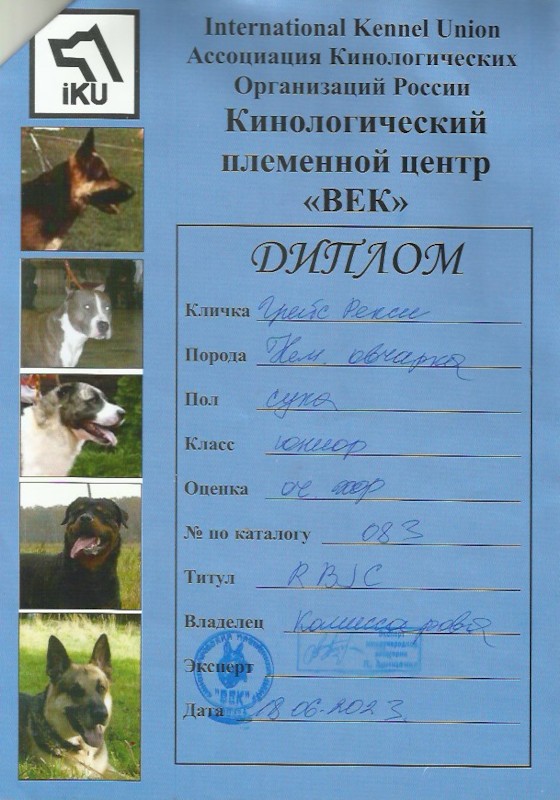 iKU
International Kennel Union
Ассоциация Кинологических
Организаций России
Кинологический
племенной центр
«ВЕК»
ДИПЛОМ
Кличка Грейс Рекси
Порода Нем. овчарка
Пол сука
Класс юниор
Оценка оч. хор
№ по каталогу 083
Титул R BJC
Владелец Комиссарова
Эксперт
"ВЕК"
Дата 18.06.2023